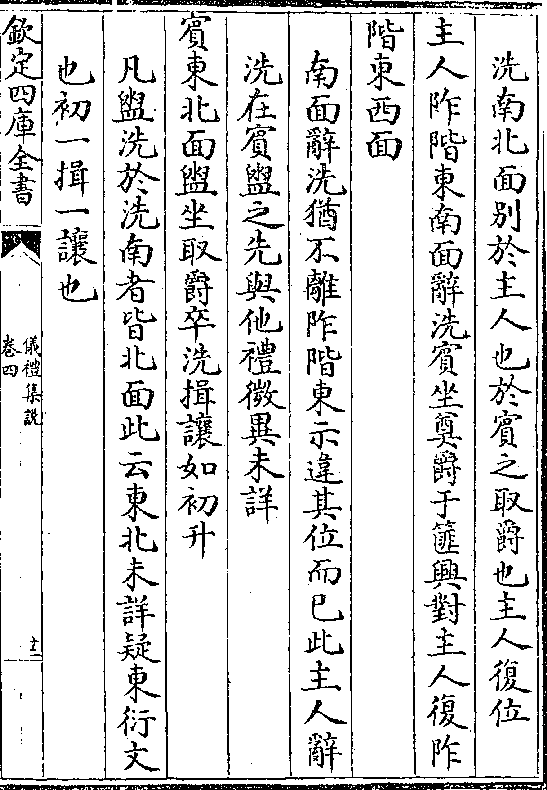 洗南北面别於主人也於賓之取爵也主人復位
主人阼階東南面辭洗賓坐奠爵于篚興對主人復阼
階東西面
南面辭洗猶不離阼階東示違其位而已此主人辭
洗在賓盥之先與他禮微異未詳
賓東北面盥坐取爵卒洗揖讓如初升
凡盥洗於洗南者皆北面此云東北未詳疑東衍文
也初一揖一讓也
欽定四庫全書
儀禮集説
卷四